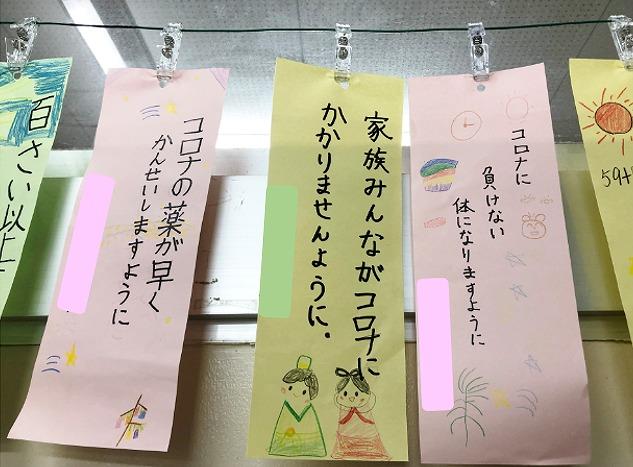 百さい以上
コロナの薬が早く
かんせいしますように
家族みんながコロナに
かかりませんように。
コロナに
負けない
体になりますように